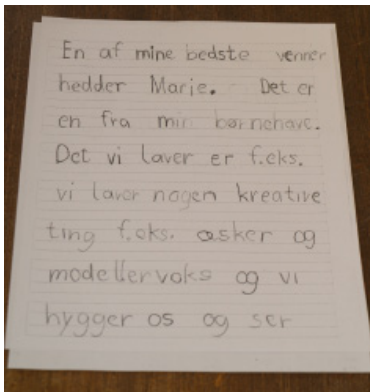 En af mine bedste venner
hedder Marie. Det er
en fra min børnehave.
Det vi laver er f.eks.
vi laver nogen kreative
ting f.eks. æsker og
modellervoks og vi
hygger os og ser